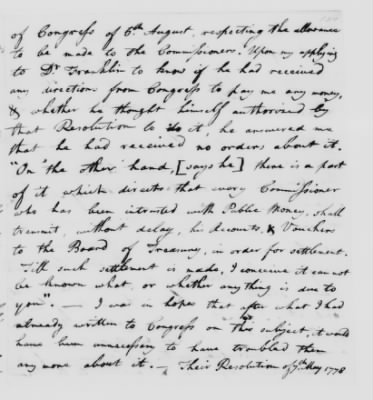 of Congress of 6th August, respecting the allowance
to be made to the Commissioners. Upon my applying
to Dr Franklin to know if he had received
any directions from Congress to pay me any money,
& whether he thought himself authorized by
that Resolution to do it, he answered me
that he had received no orders about it.
"On the other hand, [says he] there is a part
of it which directs that every Commissioner
who has been intrusted with Public Money, shall
transmit, without delay, his Accounts, & Vouchers
to the Board of Treasury, in order for settlement.
Till such settlement is made, I conceive it cannot
be known what, or whether any thing is due to
you". — I was in hopes that after what I had
already written to Congress on this subject, it would
have been unnecessary to have troubled them
any more about it. — Their Resolution of 7th May 1778